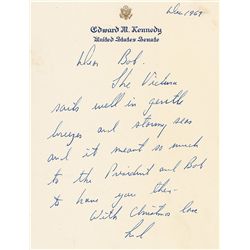 Dec 1967
Edward M. Kennedy
United States Senate
Dear Bob.
The Victura
sails well in gentle
breezes and stormy seas
and it meant so much
to the President and Bob
to have you there
With Christmas love